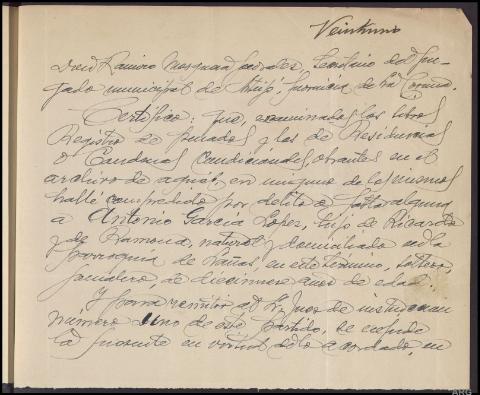 Veintiuno
Don Ramiro Mosquera, Secretario del Juz-
gado municipal de provincia de La Coruña.
Certifico: que, examinados los libros
Registro de Penados y los de Residencias
o Condenas Condicionales obrantes en el
archivo de aquel, en ninguno de los mismos
hallé comprendido por delito o falta alguna
a Antonio García Lopez, hijo de Ricardo
y de Ramona, natural y domiciliado en la
parroquia de Bañas, en este término, soltero,
jornalero, de diecinueve años de edad.
Y para remitir al Sr. Juez de instrucción
número uno de este partido, se expide
la presente en virtud de lo acordado, en
ARG